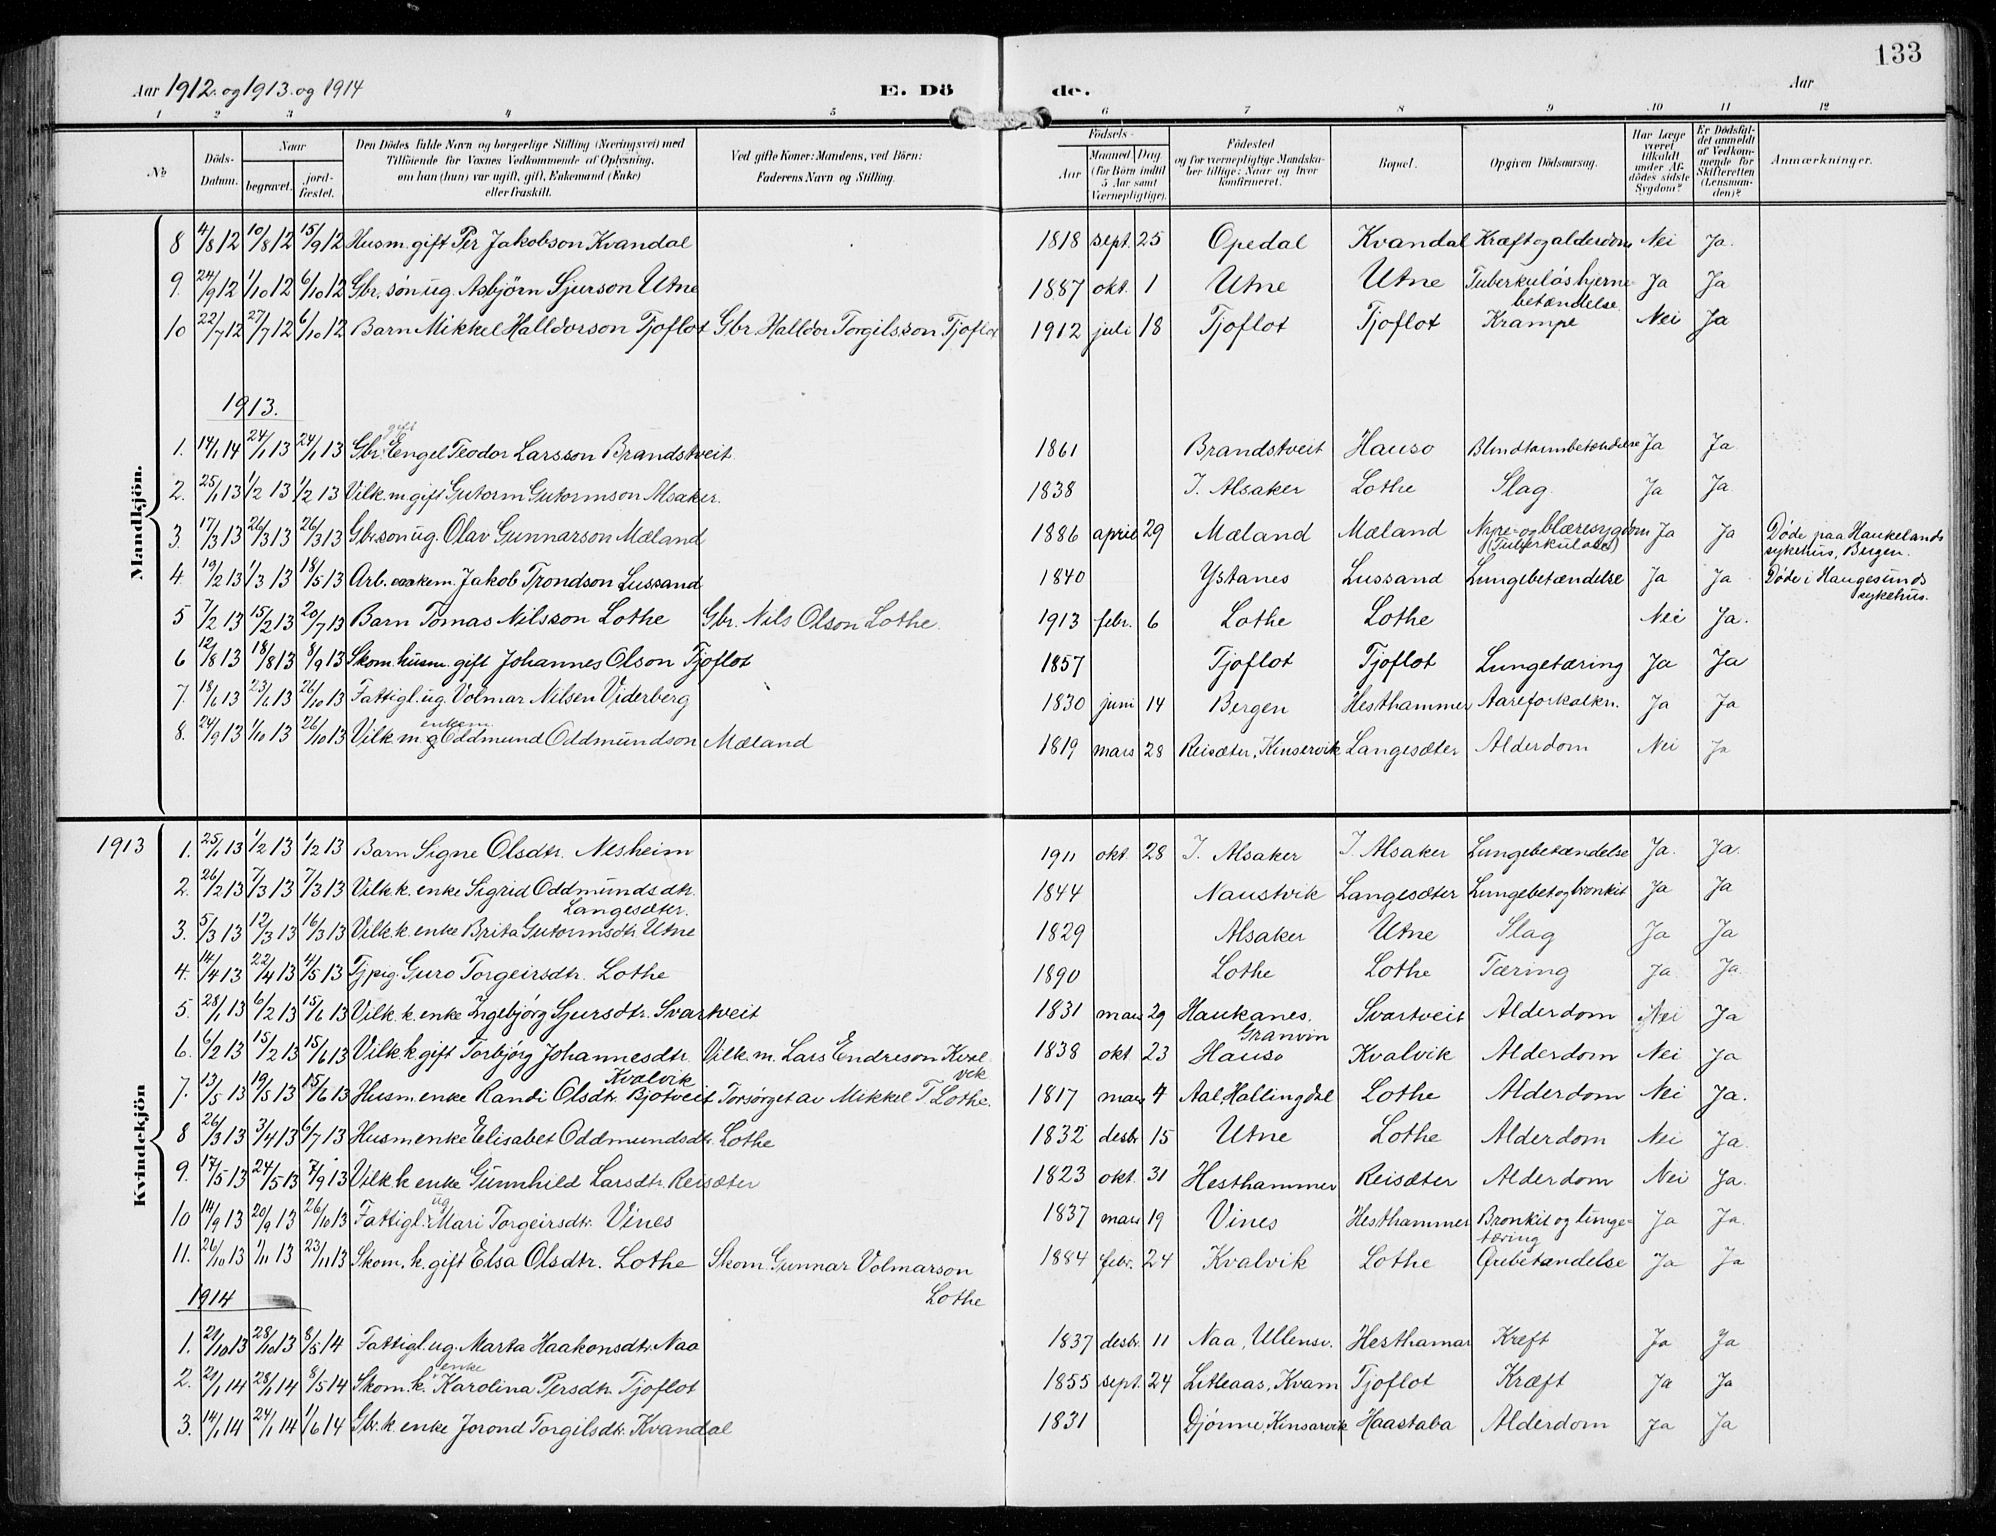 133
Aar 1912. og 1913. og 1914 E. Dö de. Aar
1 2 3 4 5 6 7 8 9 10 11 12
No Döds-Datum. Naar begravet. jord-fæstet. Den Dödes fulde Navn og borgerlige Stilling (Næringsvei) med Tilföiende for Voxnes Vedkommende af Oplysning, om han (hun) var ugift, gift, Enkemand (Enke) eller fraskilt. Ved gifte Koner: Mandens, ved Börn: Faderens Navn og Stilling. Födsels- Aar Maaned Dag (for Börn indtil 5 Aar samt Værnepligtige). Födested og for værnepligtige Mandskaber tillige: Naar og hvor konfirmeret. Bopæl. Opgiven Dödsaarsag. Har Læge været tilkaldt under Afdödes sidste Sygdom? Er Dödsfaldet anmeldt af Vedkommende for Skifteretten (Lensmanden)? Anmærkninger.
Mandkjön.
8 4/8 12 10/8 12 15/9 12 Husm. gift Per Jakobson Kvandal 1818 sept. 25 Opedal Kvandal Kræft og alderdom Nei Ja.
9. 24/9 12 1/10 12 6/10 12 Gbr. søn ug. Asbjörn Sjurson Utne 1887 okt. 1 Utne Utne Tuberkuløs hjerne Ja Ja
betændelse
10 22/7 12 27/7 12 6/10 12 Barn Mikkel Halldorson Tjoflot Gbr. Halldor Torgilsson Tjoflot 1912 juli 18 Tjoflot Tjoflot Krampe Nei Ja
1913.
gift
1. 14/1 14 24/1 13 24/1 13 Gbr. Engel Teodor Larsson Brandstveit 1861 Brandstveit Hauso Blindtarmbetændelse Ja Ja
2. 25/1 13 1/2 13 1/2 13 Vilk. m. gift Gutorm Gutormson Alsaker. 1838 I. Alsaker Lothe Slag Ja Ja
3. 17/3 13 26/3 13 26/3 13 Gbr.son ug. Olav Gunnarson Mæland 1886 april 29 Mæland Mæland Nyre- og blæresygdom Ja Ja Døde paa Haukelands
(Tuberkulose) sykehus, Bergen.
4 19/2 13 1/3 13 18/5 13 Arb. enkem. Jakob Trondson Lussand 1840 Ystanes Lussand Lungebetændelse Ja Ja Døde i Haugesunds
sykehus.
5 7/2 13 15/2 13 20/7 13 Barn Tomas Nilsson Lothe Gbr. Nils Olson Lothe. 1913 febr. 6 Lothe Lothe Nei Ja.
6 12/8 13 18/8 13 8/9 13 Skom. husm. gift Johannes Olson Tjoflot 1857 Tjoflot Tjoflot Lungetæring Ja Ja
7. 18/6 13 23/6 13 26/10 13 Fattigl. ug. Volmar Nilsen Viderberg 1830 juni 14 Bergen Hesthammer Aareforkalkn. Ja Ja
enkem.
8. 24/9 13 1/10 13 26/10 13 Vilk. m. g Oddmund Oddmundson Mæland 1819 mars 28 Reisæter, Kinservik Langesæter Alderdom Nei Ja
Kvindekjön
1913 1. 25/1 13 1/2 13 1/2 13 Barn Signe Olsdtr. Nesheim 1911 okt. 28 I. Alsaker I. Alsaker Lungebetændelse Ja. Ja.
2. 26/2 13 7/3 13 7/3 13 Vilk. k. enke Sigrid Oddmundsdtr. 1844 Naustvik Langesæter Lungebet. og bronkit Ja Ja
Langesæter.
3. 5/3 13 12/3 13 16/3 13 Vilk. k. enke Brita Gutormsdtr Utne 1829 Alsaker Utne Slag Ja Ja
4. 14/4 13 22/4 13 4/5 13 Tj.pig. Guro Torgeirsdtr. Lothe 1890 Lothe Lothe Tæring Ja. Ja.
5. 28/1 13 6/2 13 15/6 13 Vilk. k. enke Ingebjørg Sjursdtr. Svartveit 1831 mars 29 Haukanes, Svartveit Alderdom Nei Ja
Granvin
6. 6/2 13 15/2 13 15/6 13 Vilk. k. gift Torbjørg Johannesdtr. Vilk. m. Lars Endreson Kval 1838 okt. 23 Hauso Kvalvik Alderdom Nei Ja
Kvalvik vik
7. 13/5 13 19/5 13 15/6 13 Husm.enke Randi Olsdtr. Bjotveit Forsørget av Mikkel T. Lothe. 1817 mars 4 Aal, Hallingdal Lothe Alderdom Nei Ja.
8 26/3 13 3/4 13 6/7 13 Husm enke Elisabet Oddmundsdtr. Lothe 1832 desbr 15 Utne Lothe Alderdom Nei Ja.
9. 17/5 13 24/5 13 7/9 13 Vilk. k enke Gunnhild Larsdtr. Reisæter 1823 okt. 31 Hesthammer Reisæter Alderdom Nei Ja.
ug
10 14/9 13 20/9 13 26/10 13 Fattigl. Mari Torgeirsdtr. Vines 1837 mars 19 Vines Hesthammer Bronkit og lunge- Ja Ja.
tæring
11. 26/10 13 1/11 13 23/11 13 Skom. k. gift Elsa Olsdtr. Lothe Skom. Gunnar Volmarson 1884 febr. 24 Kvalvik Lothe Ørebetændelse Ja Ja
Lothe
1914
1. 21/10 13 28/10 13 8/5 14 Fattigl. ug. Marta Haakonsdtr. Naa 1837 desbr. 11 Naa, Ullensv. Hesthamar Kreft Ja Ja
enke
2. 21/1 14 28/1 14 8/5 14 Skom. k. Karolina Persdtr. Tjoflot 1855 sept. 24 Litleaas, Kvam Tjoflot Kræft Ja Ja
3. 14/1 14 24/1 14 1/6 14 Gbr. k. enke Jorond Torgilsdtr. Kvandal 1831 Djønne, Kinsarvik Haastaba Alderdom Ja Ja